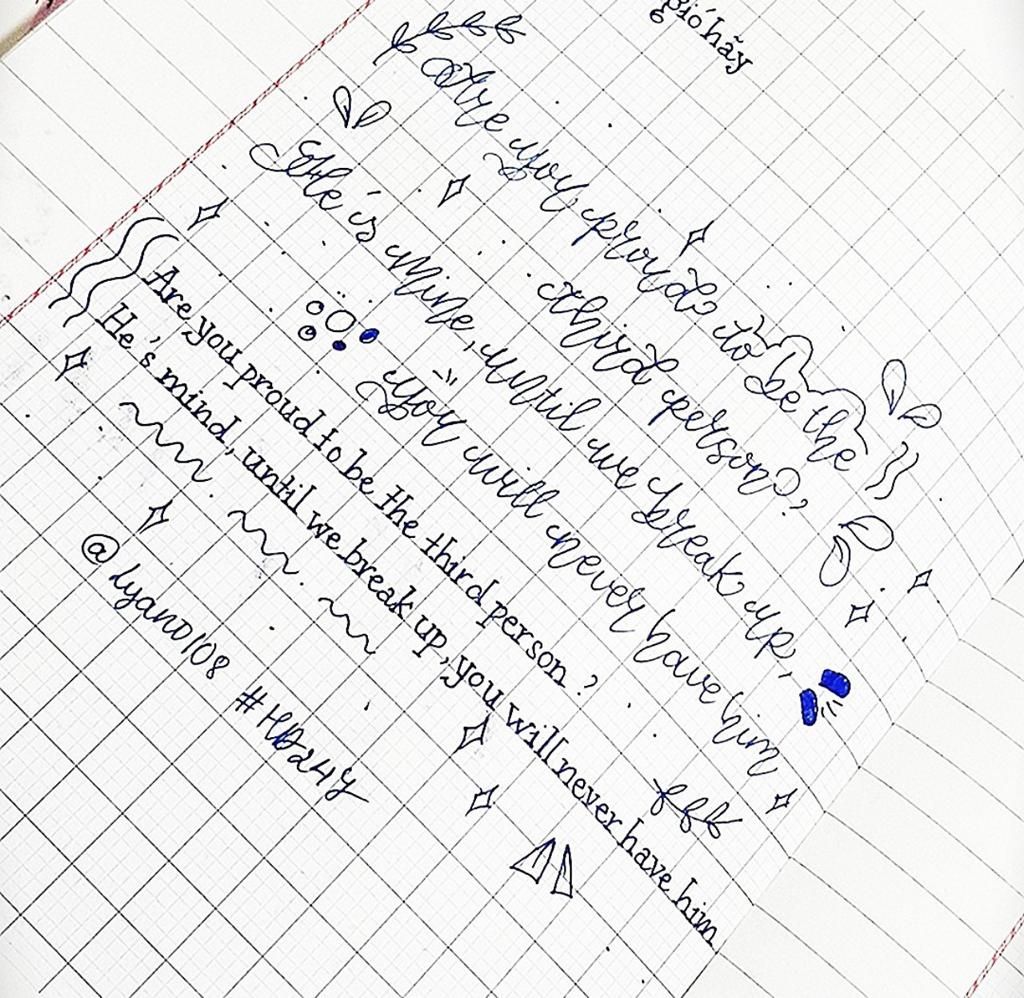 gió hãy
Are you proud to be the
third person?,
He is mine, until we break up,
you will never have him
Are you proud to be the third person?
He's mind, until we break up, you will never have him
@lyano108 #HD24y